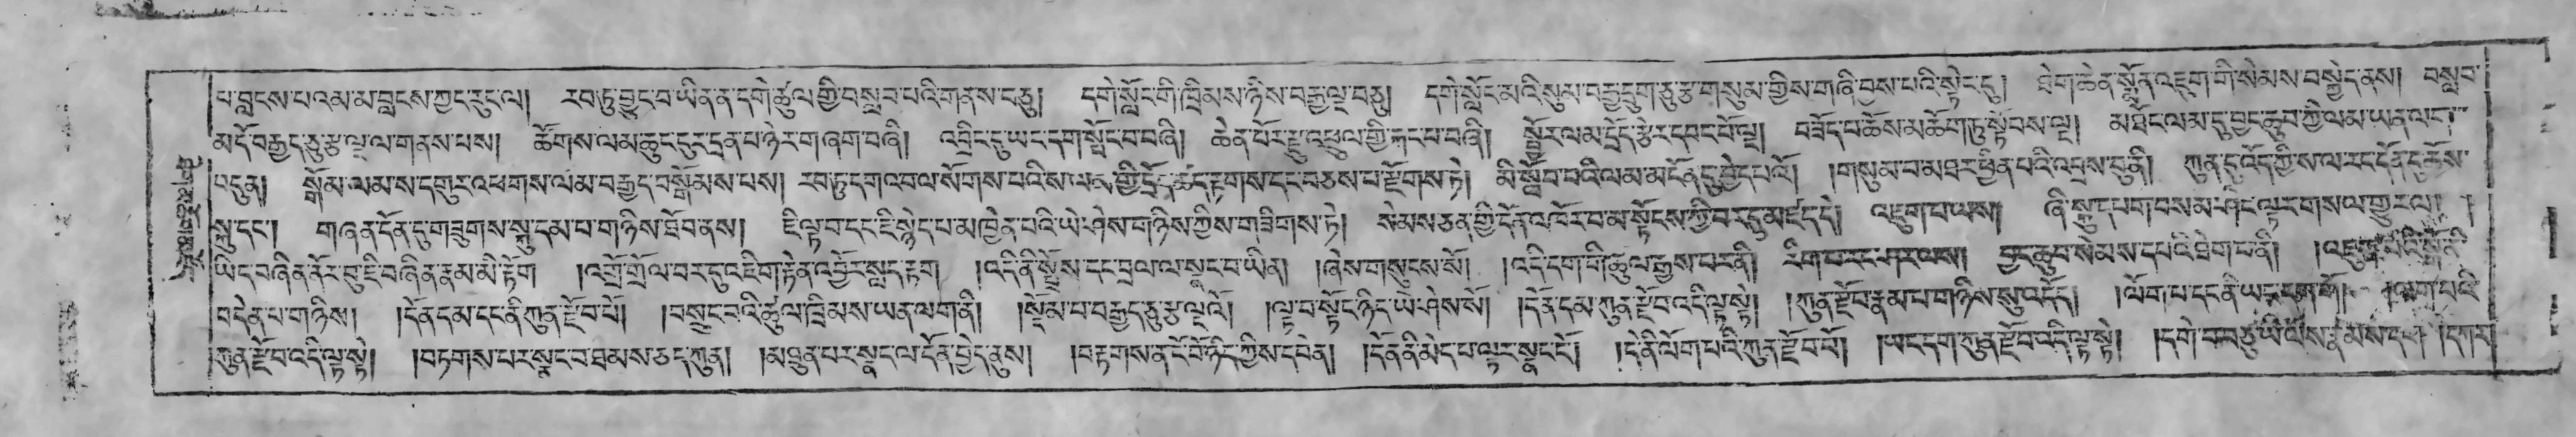 པ་བླངས་པའམ་མ་བླངས་ཀྱང་རུང་ལ། རབ་ཏུ་བྱུང་བ་ཡིན་ན་དགེ་ཚུལ་གྱི་བསླབ་པའི་གནས་བཅུ། དགེ་སློང་གི་ཁྲིམས་ཉིས་བརྒྱ་ལྔ་བཅུ། དགེ་སློང་མའི་སུམ་བརྒྱ་དྲུག་ཅུ་རྩ་གསུམ་གྱིས་གཞི་བྱས་པའི་སྟེང་དུ། ཐེག་ཆེན་སྨོན་འཇུག་གི་སེམས་བསྐྱེད་ནས། བསླབ་
མདོ་བརྒྱད་ཅུ་རྩ་ལྔ་ལ་གནས་པས། ཚོགས་ལམ་ཆུང་ངུར་དྲན་པ་ཉེར་གཞག་བཞི། འབྲིང་དུ་ཡང་དག་སྤོང་བ་བཞི། ཆེན་པོར་རྫུ་འཕྲུལ་གྱི་རྐང་པ་བཞི། སྦྱོར་ལམ་དྲོད་རྩེར་དབང་པོ་ལྔ། བཟོད་པ་ཆོས་མཆོག་ཏུ་སྟོབས་ལྔ། མཐོང་ལམ་དུ་བྱང་ཆུབ་ཀྱི་ལམ་ཡན་ལག་
བདུན། སྒོམ་ལམ་ས་དགུར་འཕགས་ལམ་བརྒྱད་བསྒོམས་པས། རབ་ཏུ་དགའ་བ་ལ་སོགས་པའི་ས་ལམ་གྱི་དྲོད་ཚད་རྟགས་དང་བཅས་པ་རྫོགས་ཏེ། མི་སློབ་པའི་ལམ་མངོན་དུ་བྱེད་པའོ། །གསུམ་པ་མཐར་ཕྱིན་པའི་འབྲས་བུ་ནི། ཀུན་ཏུ་འོད་ཀྱི་ས་ལ་རང་དོན་དུ་ཆོས་
སྐུ་དང་། གཞན་དོན་དུ་གཟུགས་སྐུ་དམ་པ་གཉིས་ཐོབ་ནས། ཇི་ལྟ་བ་དང་ཇི་སྙེད་པ་མཁྱེན་པའི་ཡེ་ཤེས་གཉིས་ཀྱིས་གཟིགས་ཏེ། སེམས་ཅན་གྱི་དོན་འཁོར་བ་མ་སྟོངས་ཀྱི་བར་དུ་མཛད་དེ། འཇུག་པ་ལས། ཞི་སྐུ་དཔག་བསམ་ཤིང་ལྟར་གསལ་གྱུར་ལ། །
ཡིད་བཞིན་ནོར་བུ་ཇི་བཞིན་རྣམ་མི་རྟོག །འགྲོ་གྲོལ་བར་དུ་འཇིག་རྟེན་འབྱོར་སླད་རྟག །འདི་ནི་སྤྲོས་དང་བྲལ་ལ་སྣང་བ་ཡིན། །ཞེས་གསུངས་སོ། །འདི་དག་གི་ཚུལ་རྒྱས་པར་ནི། རིག་པ་རང་ཤར་ལས། བྱང་ཆུབ་སེམས་དཔའི་ཐེག་པ་ནི། །འཇུག་པའི་སྒོ་ནི་
བདེན་པ་གཉིས། །དོན་དམ་དང་ནི་ཀུན་རྫོབ་བོ། །བསྲུང་བའི་ཚུལ་ཁྲིམས་ཡན་ལག་ནི། །སྡོམ་པ་བརྒྱད་ཅུ་རྩ་ལྔའོ། །ལྟ་བ་སྟོང་ཉིད་ཡེ་ཤེས་སོ། །དོན་དམ་ཀུན་རྫོབ་འདི་ལྟ་སྟེ། །ཀུན་རྫོབ་རྣམ་པ་གཉིས་སུ་འདོད། །ལོག་པ་དང་ནི་ཡང་དག་གོ། །ལོག་པའི་
ཀུན་རྫོབ་འདི་ལྟ་སྟེ། །བཏགས་པར་སྣང་བ་ཐམས་ཅད་ཀུན། །མཐུན་པར་སྣང་ལ་དོན་བྱེད་ནུས། །བརྟགས་ན་ངོ་བོ་ཉིད་ཀྱིས་དབེན། །དོན་ནི་མེད་པ་ལྟར་སྣང་ངོ། །དེ་ནི་ལོག་པའི་ཀུན་རྫོབ་བོ། །ཡང་དག་ཀུན་རྫོབ་འདི་ལྟ་སྟེ། །དགེ་བ་བཅུ་ཡི་ལས་རྣམས་དང་། །དཀར་